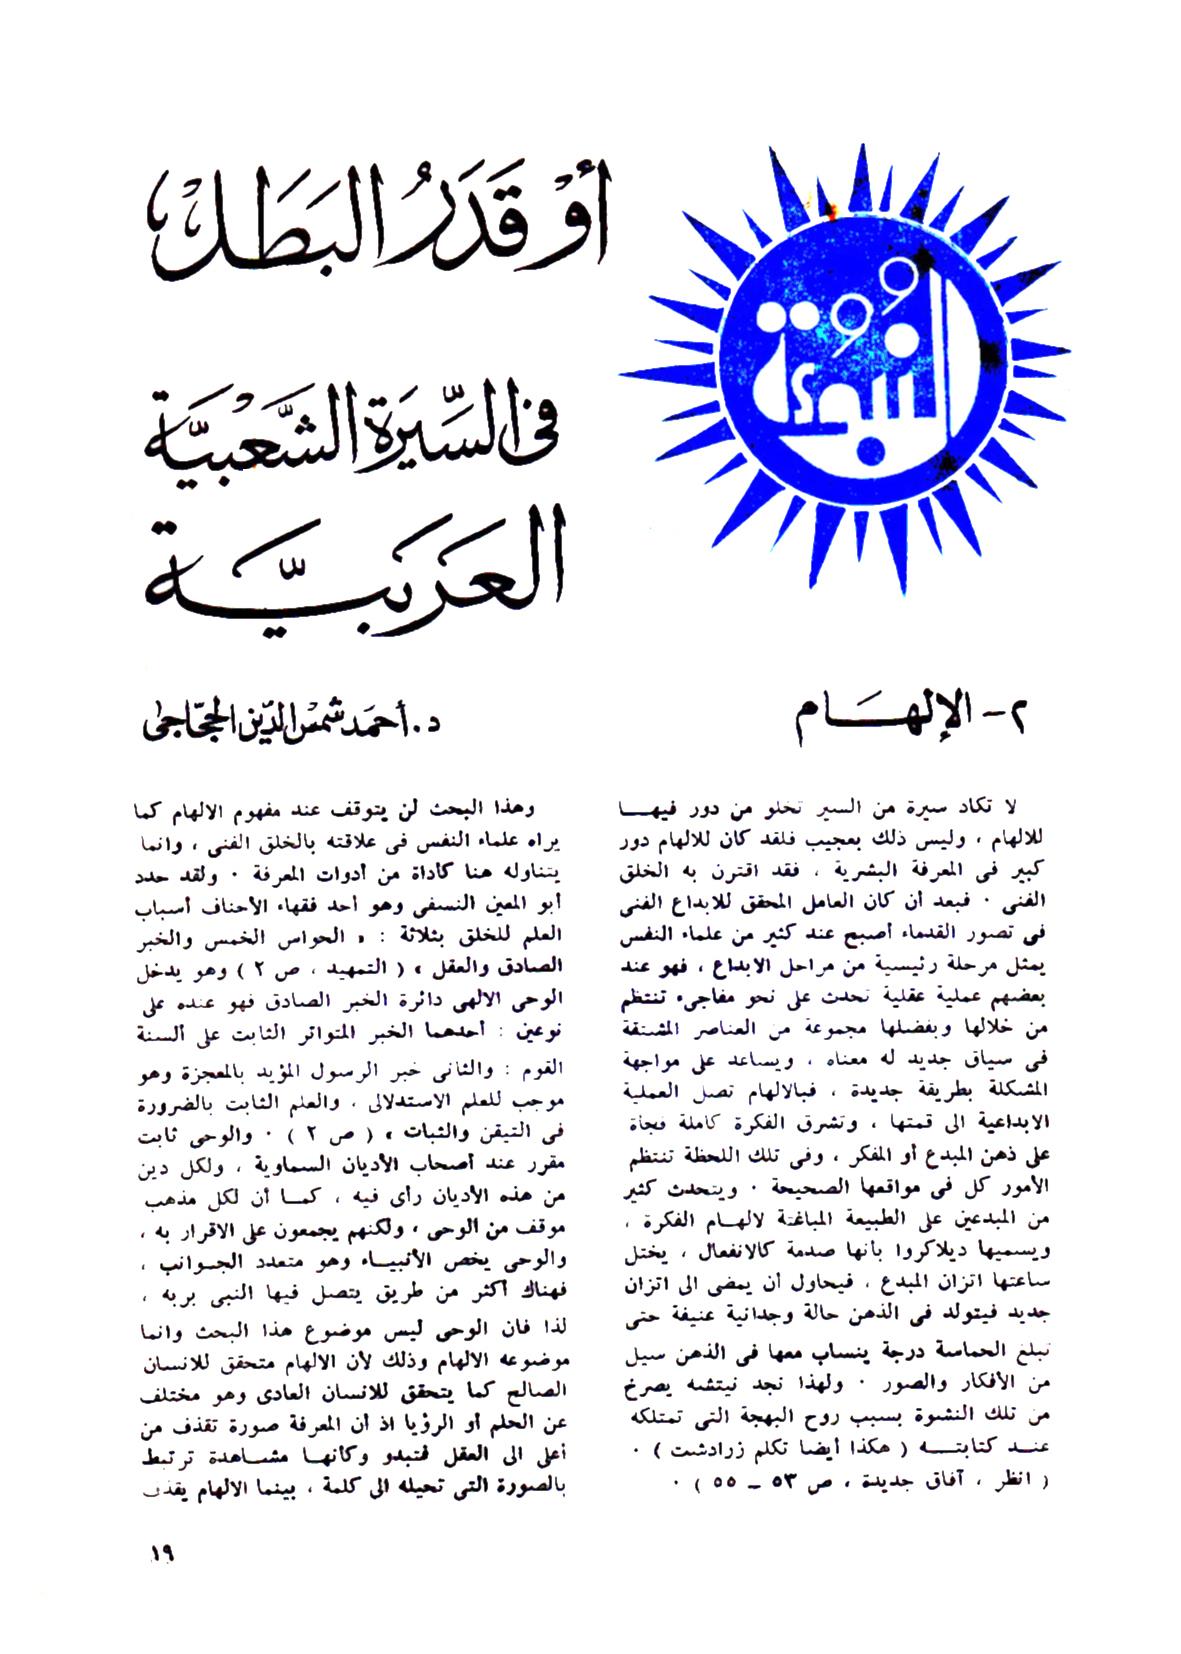 النبوءة
أو قَدَرُ البَطَل
في السِّيرَة الشَّعبيَّة
العَرَبيَّة
٢ - الإلهام
د. أحمَد شمسُ الدّين الحجّاجى
لا تكاد سيرة من السير تخلو من دور فيهـا
للالهام ، وليس ذلك بعجيب فلقد كان للالهام دور
كبير فى المعرفة البشرية ، فقد اقترن به الخلق
الفنى ٠ فبعد أن كان العامل المحقق للابداع الفنى
فى تصور القدماء أصبح عند كثير من علماء النفس
يمثل مرحلة رئيسية من مراحل الابداع ، فهو عند
بعضهم عملية عقلية تحدث على نحو مفاجىء تنتظم
من خلالها وبفضلها مجموعة من العناصر المشتقة
فى سياق جديد له معناه ، ويساعد على مواجهة
المشكلة بطريقة جديدة ، فبالالهام تصل العملية
الابداعية الى قمتها ، وتشرق الفكرة كاملة فجأة
على ذهن المبدع أو المفكر ، وفى تلك اللحظة تنتظم
الأمور كل فى مواقعها الصحيحة ٠ ويتحدث كثير
من المبدعين على الطبيعة المباغتة لالهـام الفكرة ،
ويسميها ديلاكروا بأنها صدمة كالانفعال ، يختل
ساعتها اتزان المبدع ، فيحاول أن يمضى الى اتزان
جديد فيتولد فى الذهن حالة وجدانية عنيفة حتى
تبلغ الحماسة درجة ينساب معها فى الذهن سيل
من الأفكار والصور ٠ ولهذا نجد نيتشه يصرخ
من تلك النشوة بسبب روح البهجة التى تمتلكه
عنـد كتابتـه ( هكذا أيضا تكلم زرادشت ) ٠
( انظر ، آفاق جديدة ، ص ٥٣ ــ ٥٥ ) ٠
وهذا البحث لن يتوقف عند مفهوم الالهام كما
يراه علماء النفس فى علاقته بالخلق الفنى ، وانما
يتناوله هنا كأداة من أدوات المعرفة ٠ ولقد حدد
أبو المعين النسفى وهو أحد فقهاء الأحناف أسباب
العلم للخلق بثلاثة : « الحواس الخمس والخبر
الصادق والعقل » ( التمهيد ، ص ٢ ) وهو يدخل
الوحى الالهى دائرة الخبر الصادق فهو عنده على
نوعين : أحدهما الخبر المتواتر الثابت على ألسنة
القوم : والثانى خبر الرسول المؤيد بالمعجزة وهو
موجب للعلم الاستدلالى ، والعلم الثابت بالضرورة
فى التيقن والثبات » ( ص ٢ ) ٠ والوحى ثابت
مقرر عند أصحاب الأديان السماوية ، ولكل دين
من هذه الأديان رأى فيه ، كمـا أن لكل مذهب
موقف من الوحى ، ولكنهم يجمعون على الاقرار به ،
والوحى يخص الأنبيـاء وهو متعدد الجـوانب ،
فهناك أكثر من طريق يتصل فيها النبى بربه ،
لذا فان الوحى ليس موضوع هذا البحث وانما
موضوعه الالهام وذلك لأن الالهام متحقق للانسان
الصالح كما يتحقق للانسان العادى وهو مختلف
عن الحلم أو الرؤيا اذ أن المعرفة صورة تقذف من
أعلى الى العقل فتبدو وكأنهـا مشـاهدة ترتبط
بالصورة التى تحيله الى كلمة ، بينما الالهام يقذف
١٩